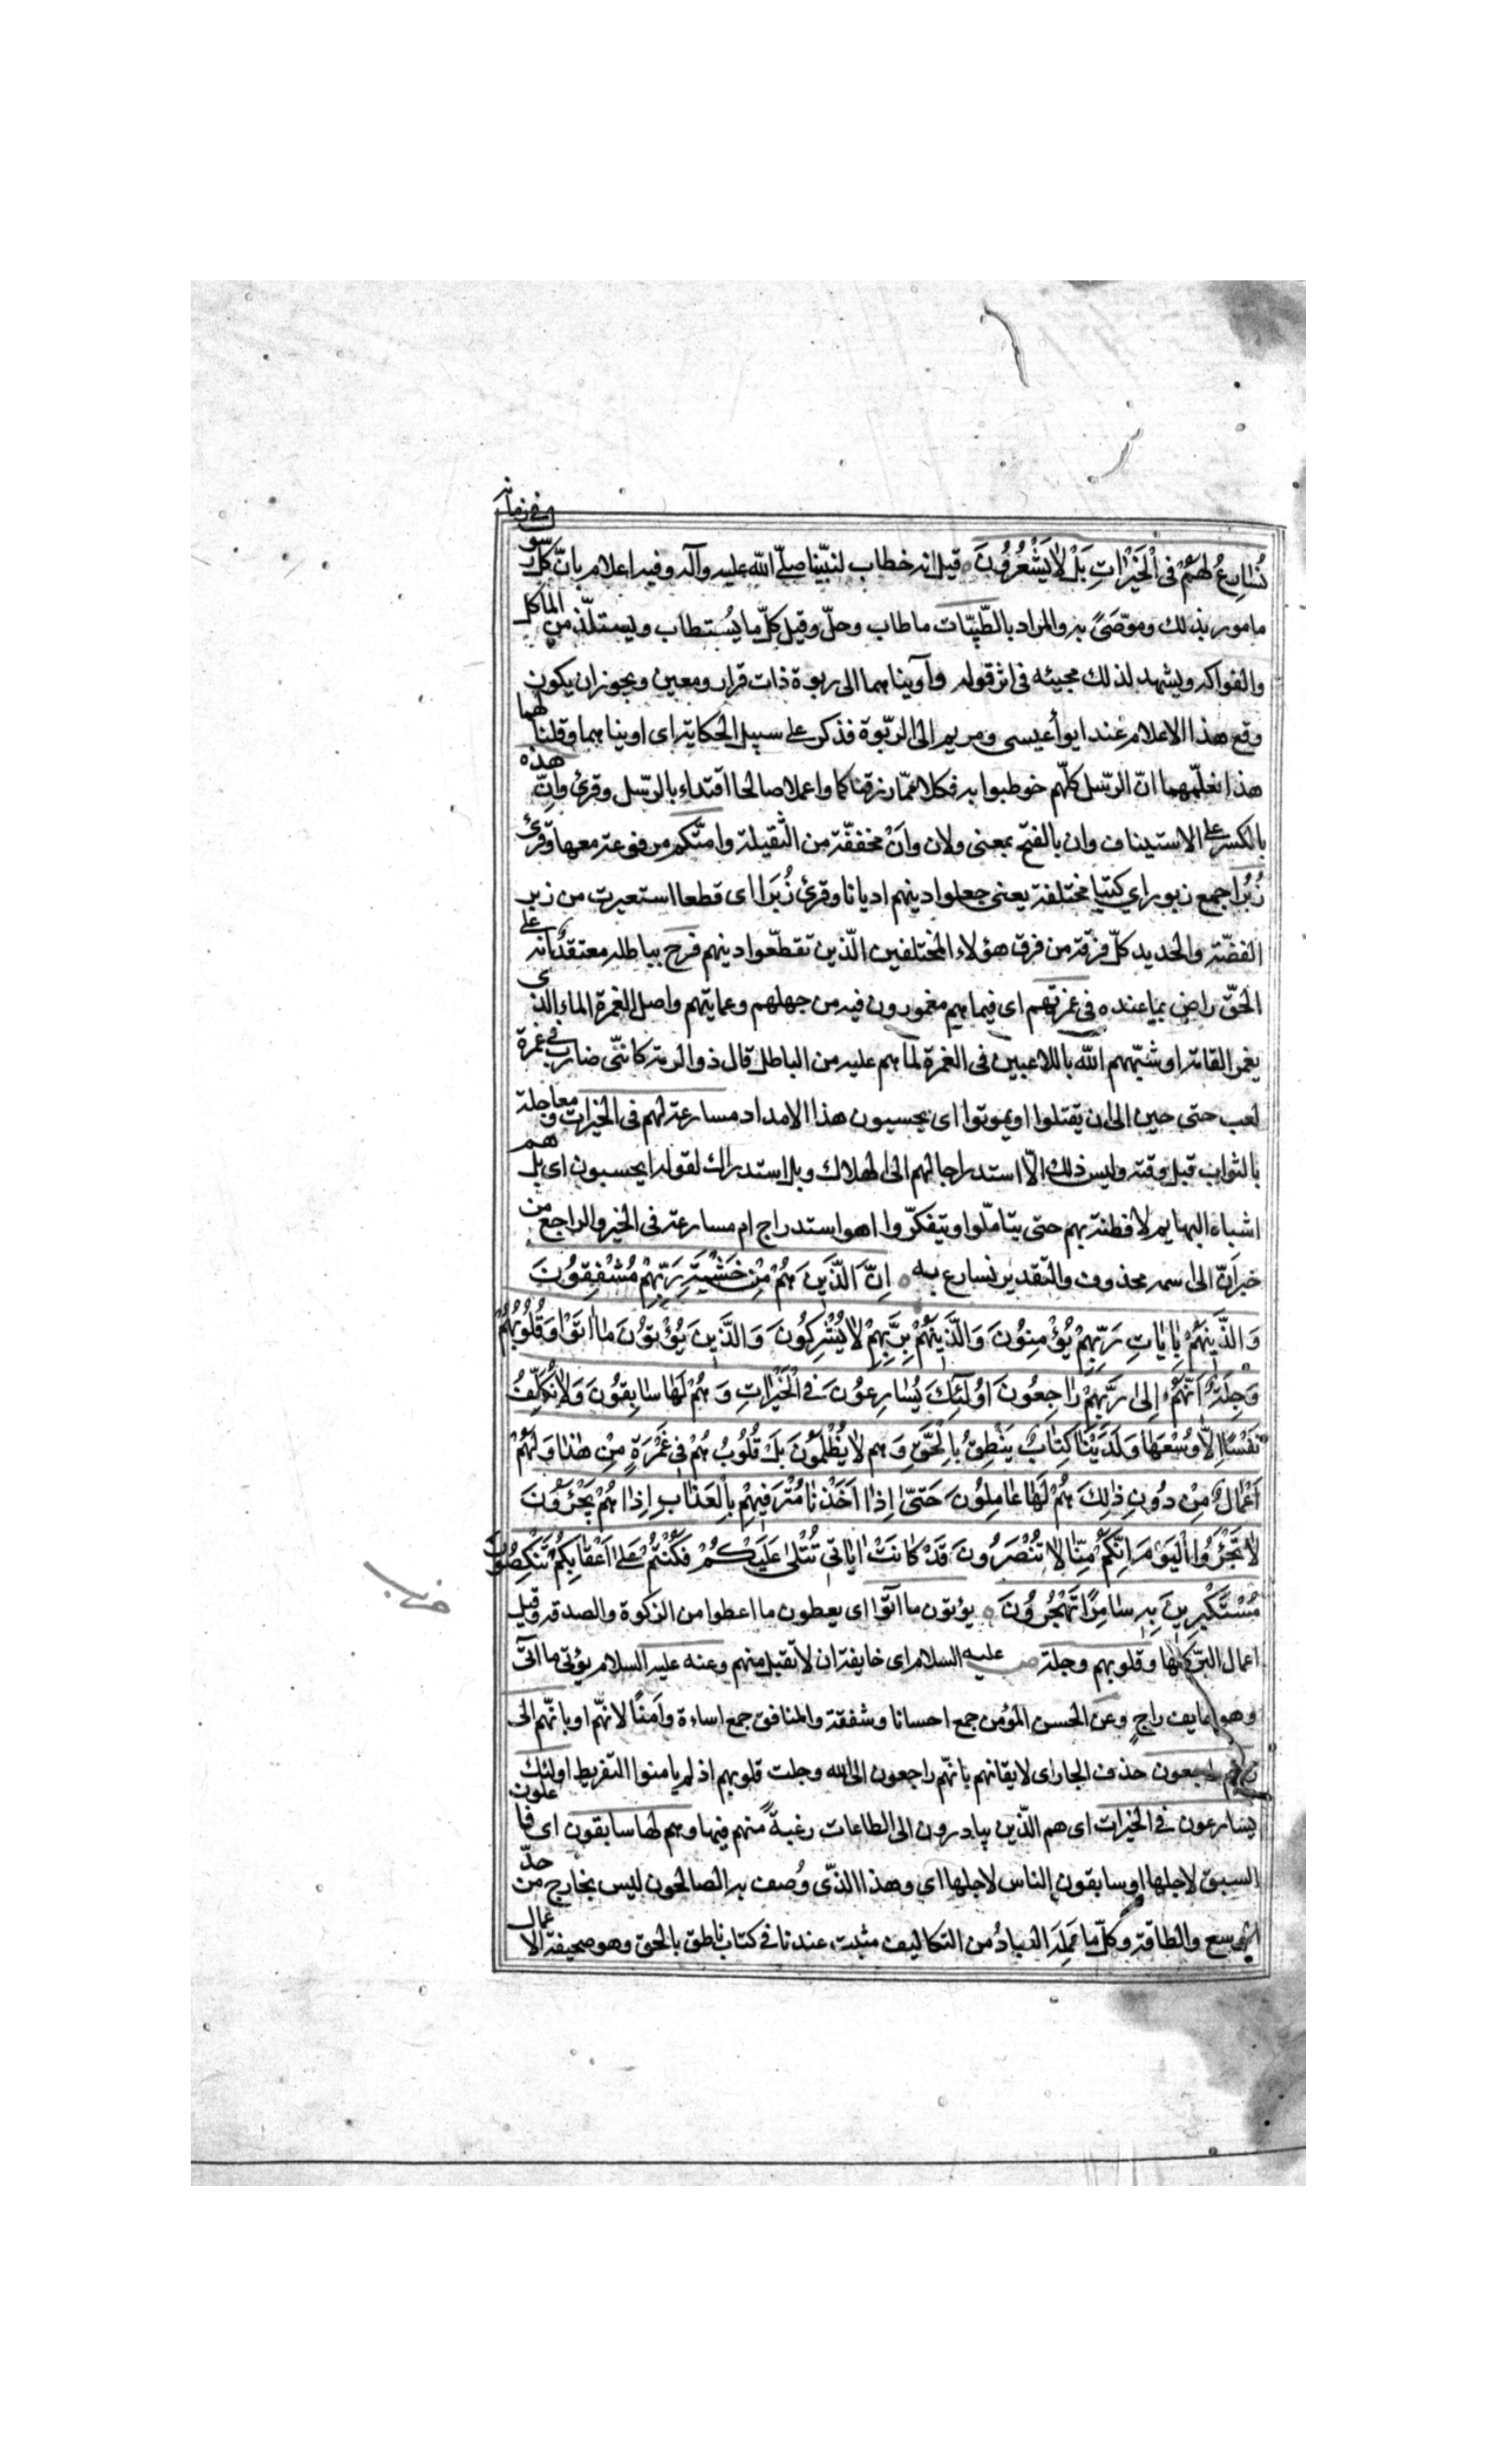 نُسَارِعُ لَهُمْ فِى الْخَيْرَاتِ بَلْ لَا يَشْعُرُونَ ٥ قيل انه خطاب لنبيّنا صلّى الله عليه وآله وفيه اعلام بانّ كل رسول فى زمانه
مامور بذلك وموصّىً به والمراد بالطّيّبات ما طاب وحلّ وقيل كلّ ما يُستطاب ويستلذّ من الماكل
والفواكه ويشهد لذلك مجيئه فى اثر قوله وآويناهما الى ربوة ذات قرار ومعين ويجوز ان يكون
وقع هذا الاعلام عند ايواء عيسى ومريم الى الرّبوة فذكر على سبيل الحكاية اى اويناهما وقلنا لهما
هذا نعلّمهما انّ الرّسل كلّهم خوطبوا به فكلا ممّا رزقناكما واعملا صالحا اقتداء بالرّسل وقرئ وانّ هذه
بالكسر على الاستيناف وان بالفتح بمعنى ولان وانْ مخففّة من الثّقيلة وامتّكم مرفوعة معها وقرئ
زُبُرًا جمع زبور اي كتبا مختلفة يعنى جعلوا دينهم اديانا وقرئ زُبَرا اى قطعا استعيرت من زبر
الفضّة والحديد كلّ فرقة من فرق هؤلاء المختلفين الّذين تقطّعوا دينهم فرح بباطله معتقد انه على
الحقّ راضٍ بما عنده فى غمرتهم اى فيما هم مغمورون فيه من جهلهم وعمايتهم واصل الغمرة الماء الذى
يغمر القامة او شبّههم الله باللاعبين فى الغمرة لما هم عليه من الباطل قال ذو الرمة كانّنى ضارب فى غمرة
لعب حتى حين الى ان يقتلوا او يموتوا اى يحسبون هذا الامداد مسارعة لهم فى الخيرات ومعاجلة
بالثواب قبل وقته وليس ذلك الّا استدراجا لهم الى الهلاك وبل استدراك لقوله ايحسبون اى بل هم
اشباه البهايم لا فطنة بهم حتى يتامّلوا ويتفكرّوا اهو استدراج ام مسارعة فى الخير والراجع من
خبر انّ الى اسمه محذوف والتقدير نسارع به ٥ اِنَّ الَّذِينَ هُمْ مِنْ خَشْيَةِ رَبِّهِمْ مُشْفِقُونَ
وَالَّذِينَ هُمْ بِايَاتِ رَبِّهِمْ يُؤْمِنُونَ وَالَّذِينَ هُمْ بِرَبِّهِمْ لَا يُشْرِكُونَ وَالَّذِينَ يُؤْتُونَ مَا اتَوْا وَقُلُوبُهُمْ
وَجِلَةٌ اَنَّهُمْ اِلَى رَبِّهِمْ رَاجِعُونَ اُولَئِكَ يُسَارِعُونَ فِى الْخَيْرَاتِ وَهُمْ لَهَا سَابِقُونَ وَلَا نُكَلِّفُ
نَفْسًا اِلَّا وُسْعَهَا وَلَدَيْنَا كِتَابٌ يَنْطِقُ بِالْحَقِّ وَهم لَا يُظْلَمُونَ بَلْ قُلُوبُهُمْ فِى غَمْرَةٍ مِنْ هٰذَا وَلَهُمْ
اَعْمَالٌ مِنْ دُونِ ذٰلِكَ هُمْ لَهَا عَامِلُونَ حَتّىٰ اِذَا اَخَذْنَا مُتْرَفِيهِمْ بِالْعَذَابِ اِذَا هُمْ يَجْئَرُونَ
لَا تَجْئَرُوا الْيَوْمَ اِنَّكُمْ مِنَّا لَا تُنْصَرُونَ قَدْ كَانَتْ ايَاتى تُتْلَى عَلَيْكُمْ فَكُنْتُمْ عَلَى اَعْقَابِكُمْ تَنْكِصُونَ
مُسْتَكْبِرِينَ بِهِ سَامِرًا تَهْجُرُونَ ٥ يؤتون ما اتوا اى يعطون ما اعطوا من الزكوة والصدقه وقيل
اعمال البرّ كلّها وقلوبهم وجلة عليه السلام اى خايفة ان لا تقبل منهم وعنه عليه السلام يؤتى ما اتى
وهو خايف راجٍ وعن الحسن المؤمن جمع احسانا وشفقة والمنافق جمع اساءة وامنًا لانهّم او بانهّم الى
ربهم راجعون حذف الجار اى لايقانهم بانهّم راجعون الى الله وجلت قلوبهم اذ لم يامنوا التفريط اولئك
يسارعون فى الخيرات اى هم الّذين يبادرون الى الطاعات رغبةً منهم فيها وهم لها سابقون اى فاعلون
السبق لاجلها او سابقون الناس لاجلها اى وهذا الذّى وُصف به الصالحون ليس بخارج من حدّ
الوسع والطاقة وكلّ ما عَمِلَه العبادُ من التكاليف مثبت عندنا فى كتاب ناطق بالحق وهو صحيفة الاعمال